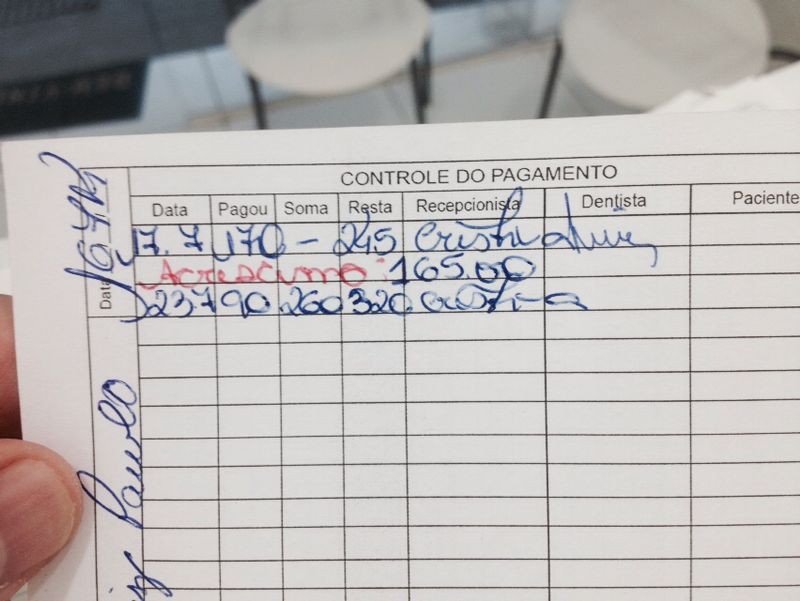 CONTROLE DO PAGAMENTO
Data Pagou Soma Resta Recepcionista Dentista Paciente
17.7 170 - 245
Acrescimo: 165.00
23.7 90 260 320 Cristina
Data
Paulo